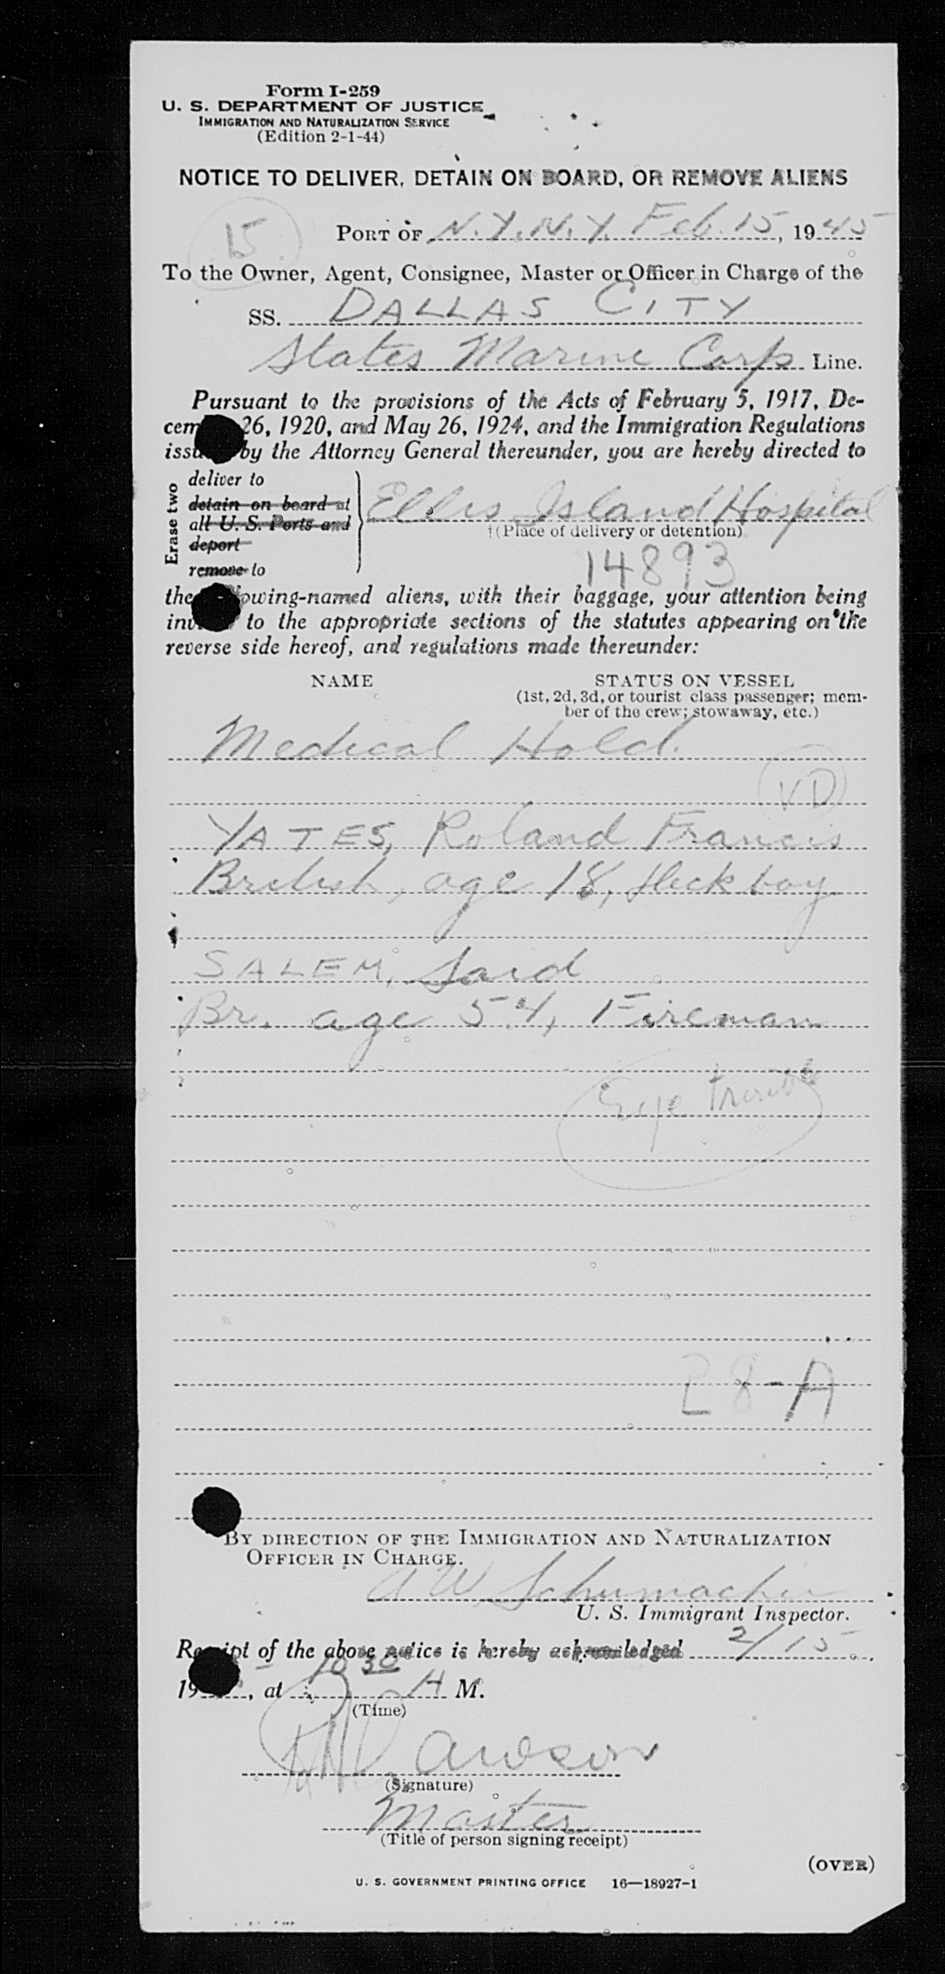 Form I-259
U. S. DEPARTMENT OF JUSTICE
IMMIGRATION AND NATURALIZATION SERVICE
(Edition 2-1-44)
NOTICE TO DELIVER, DETAIN ON BOARD, OR REMOVE ALIENS
15
PORT OF N.Y.N.Y. Feb. 15, 1945
To the Owner, Agent, Consignee, Master or Officer in Charge of the
SS. DALLAS CITY
States Marine Corp Line.
Pursuant to the provisions of the Acts of February 5, 1917, De-
cem 26, 1920, and May 26, 1924, and the Immigration Regulations
issu by the Attorney General thereunder, you are hereby directed to
Erase two
deliver to
detain on board at
all U. S. Ports and
deport
remove to
Ellis Island Hospital
†(Place of delivery or detention)
14893
the owing-named aliens, with their baggage, your attention being
inv to the appropriate sections of the statutes appearing on the
reverse side hereof, and regulations made thereunder:
NAME STATUS ON VESSEL
(1st, 2d, 3d, or tourist class passenger; mem-
ber of the crew; stowaway, etc.)
Medical Hold.
VD
YATES, Roland Francis
British, age 18, Deck boy
SALEM, Said
Br. age 54, Fireman
Eye trouble
28-A
BY DIRECTION OF THE IMMIGRATION AND NATURALIZATION
OFFICER IN CHARGE.
A W Schumacher
U. S. Immigrant Inspector.
Receipt of the above notice is hereby acknowledged 2/15
19 , at 10 30 A M.
(Time)
(Signature)
Master
(Title of person signing receipt)
(OVER)
U. S. GOVERNMENT PRINTING OFFICE 16—18927-1